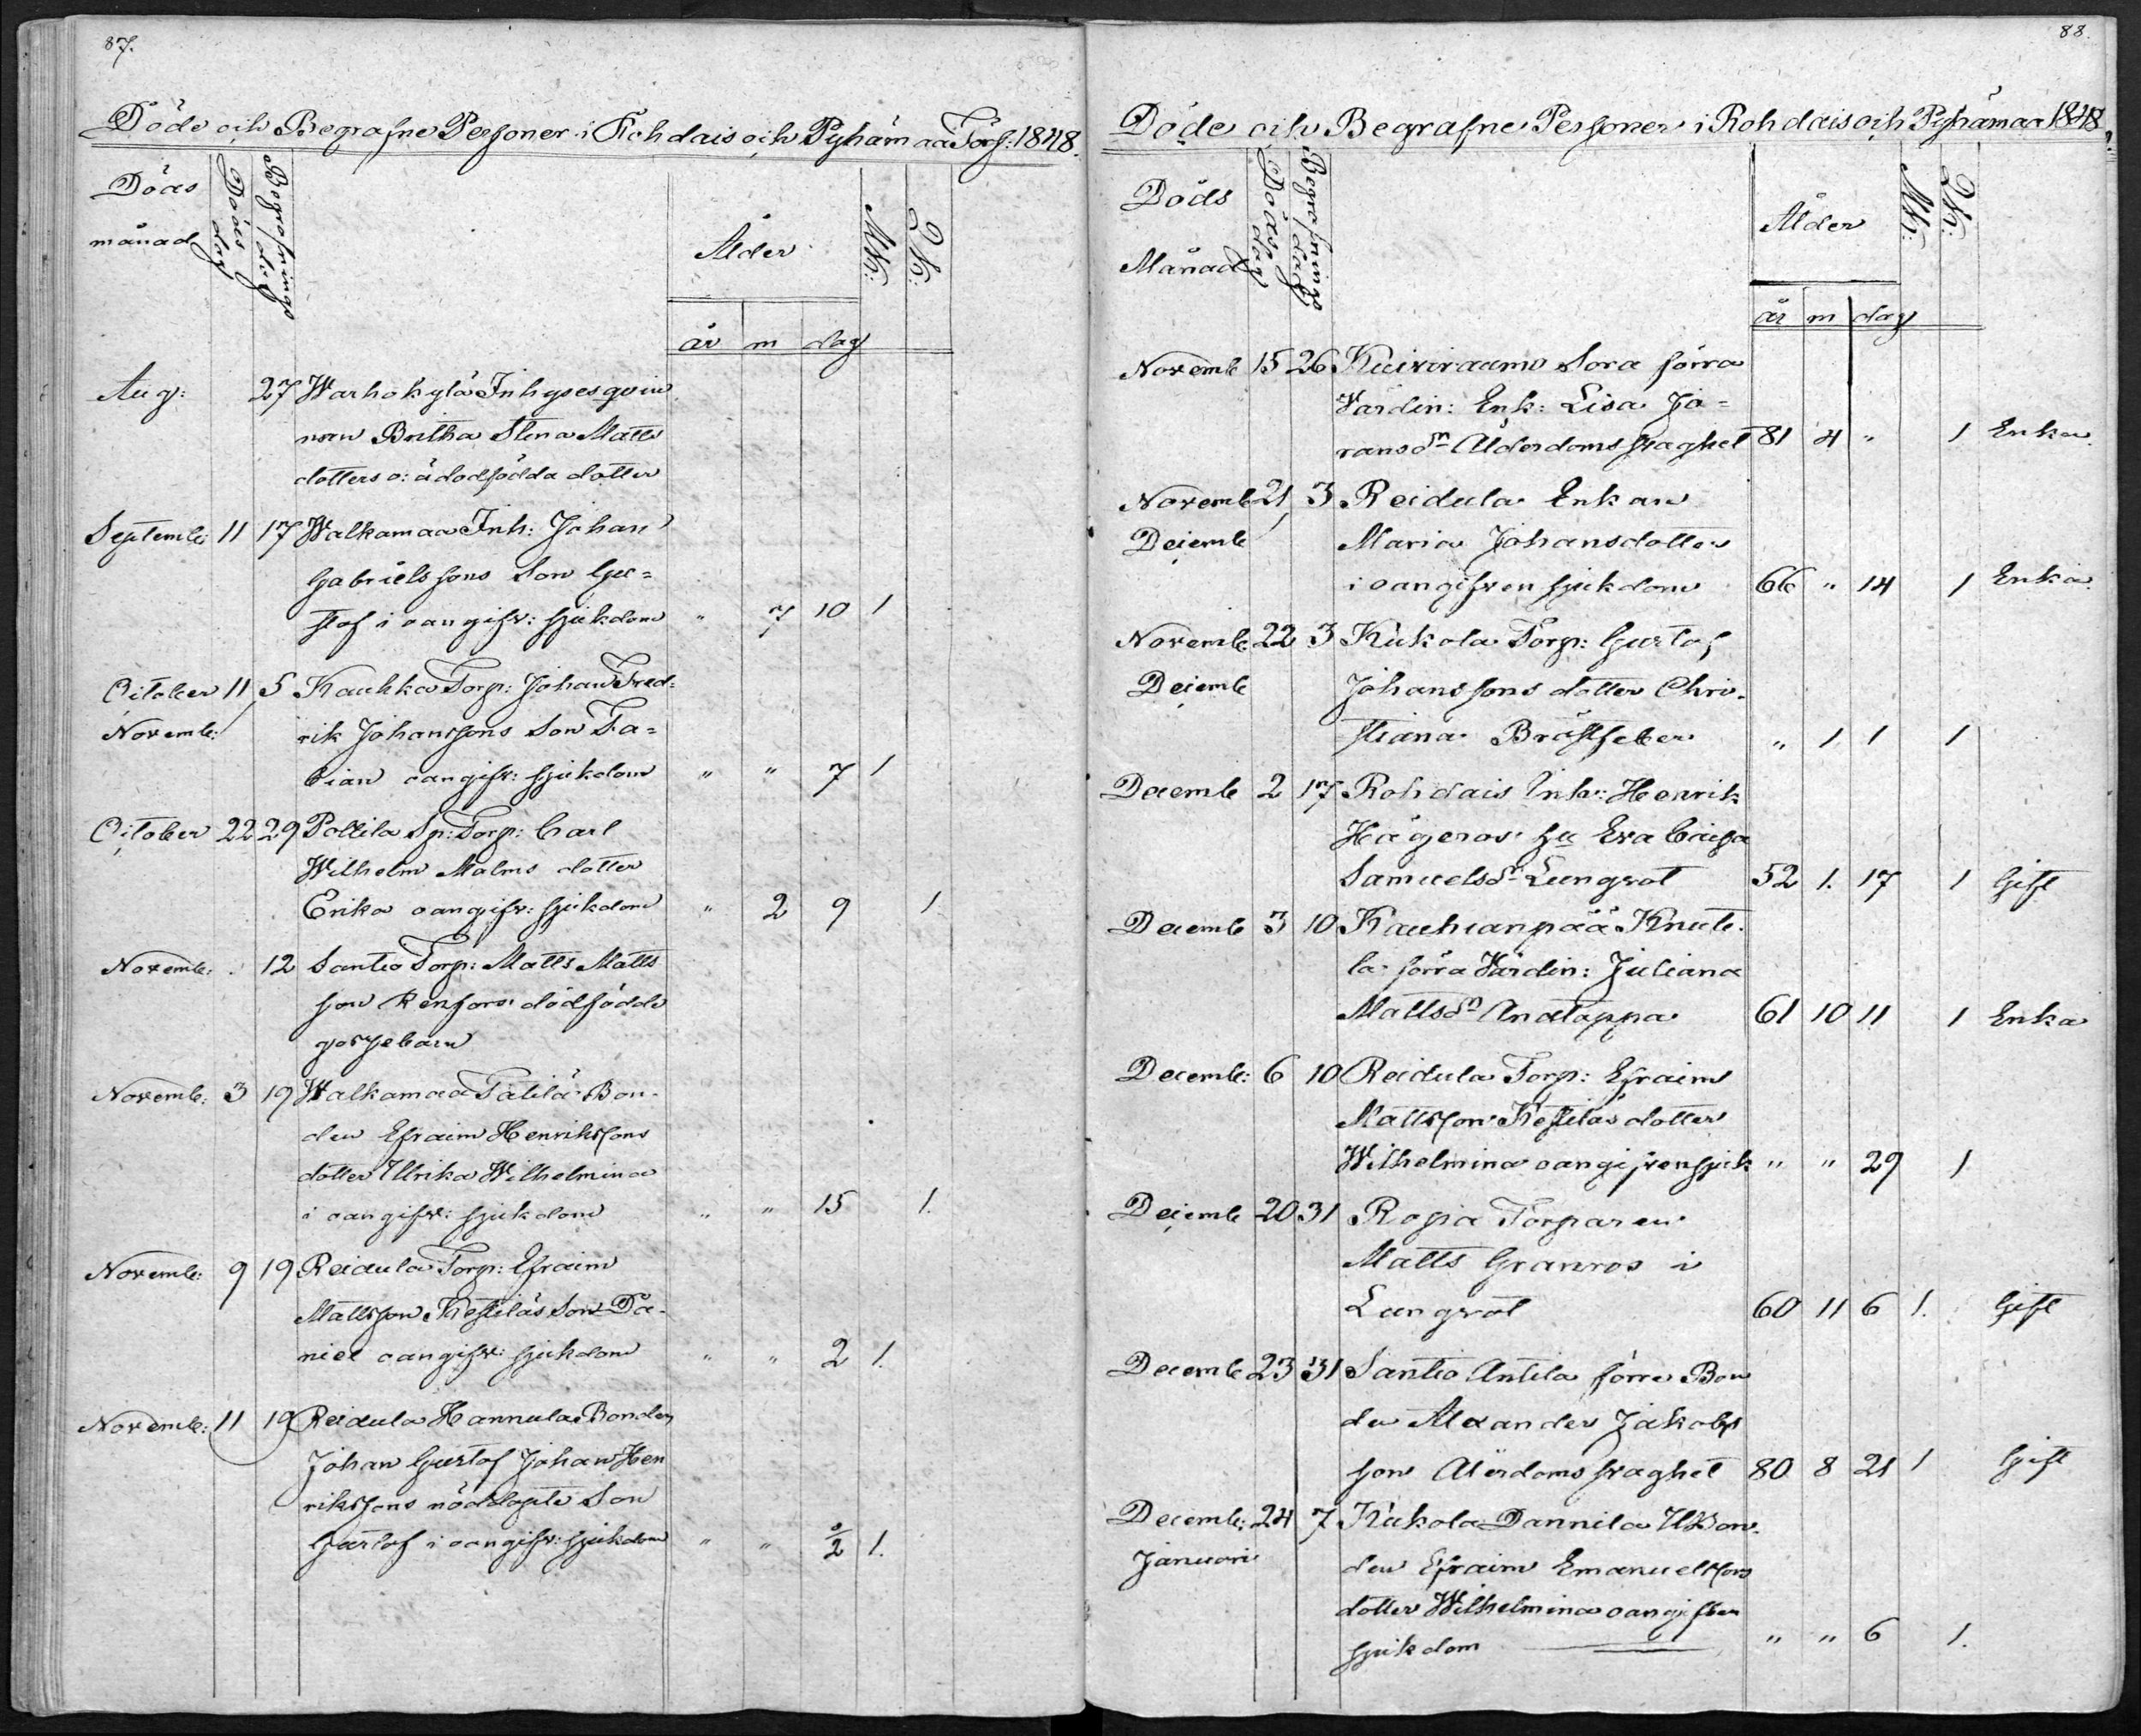 87.
Döde och Begrafne Personer i Rohdais och Pyhämaa Förs: 1848.
Döds månad
Döds dag
Begrafnings dag
Ålder
MK:
QK:
år m dag
Aug: 27 Warhokylä Inhyses qvin
nan Britha Stena Matts
dotters o: ä dödfödda dotter
Septemb: 11 17 Walkamaa Inh: Johan
Gabrielssons Son Gu=
staf i oangifv: sjukdom " 7 10 1
October 11 5 Kauhka Torp: Johan Fred:
Novemb: rik Johanssons Son Fa=
bian oangifv: sjukdom " " 7 1
October 22 29 Pollila Sp: Torp: Carl
Wilhelm Malms dotter
Erika oangifv: sjukdom " 2 9 1
Novemb: . 12 Santio Torp: Matts Matts
son Renfors dödfödde
gossebarn
Novemb: 3 19 Walkamaa Tätilä Bon-
den Efraim Henrikssons
dotter Ulrika Wilhelmina
i oangifv: sjukdom " " 15 1.
Novemb: 9 19 Reidula Torp: Efraim
Mattsson Kestiläs Son Da-
niel oangifv: sjukdom " " 2 1.
Novemb: 11 19 Reidula Hannula Bonden
Johan Gustof Johan Hen
rikssons nöddöpte Son
Gustof i oangifv: sjukdom " " 2/2 1.
88.
Döde och Begrafne Personer i Rohdais och Pyhämaa 1848.
Döds Månad
Döds dag
Begrafnings dag
Ålder
MK:
QK:
år m dag
Novemb 15 26 Kuiviraumo Sora förra
Värdin: Enk: Lisa Jö=
ransdn Ålderdoms svaghet 81 4 " 1 Enka.
Novemb 21 3 Reidula Enkan
Decemb Maria Johansdotter
i oangifven sjukdom 66 " 14 1 Enka.
Novemb: 22 3 Kukola Torp: Gustaf
Decemb Johanssons dotter Chri-
stiana Bröstfeber " 1 1 1
Decemb 2 17 Rohdais Inh: Henrik
Hägeros hu Eva Cajsa
Samuelsdr Lungsot 52 1. 17 1 Gift
Decemb 3 10 Kauhianpää Knuti-
la förra Värdin: Juliana
Mattsdn Andtäppa 61 10 11 1 Enka
Decemb: 6 10 Reidula Torp: Efraim
Mattsson Kestiläs dotter
Wilhelmina oangifven sjuk " " 29 1
Decemb 20 31 Ropia Torparen
Matts Granros i
Lungsot 60 11 6 1. Gift
Decemb 23 31 Santio Antila förre Bon
den Alexander Jakobs
son Ålerdoms svaghet 80 8 21 1 Gift
Decemb: 24 7 Kukola Dannila U Bon-
Januari den Efraim Emanuelssons
dotter Wilhelmina oangifven
sjukdom " " 6 1.